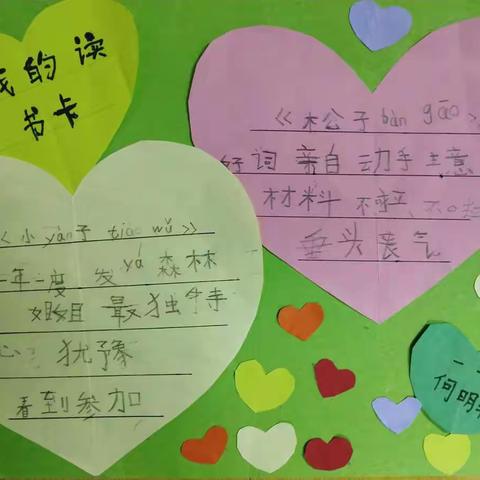 我的读
书卡
《松公子bàn gāo》
好词 亲自 动手 主意
材料 不
垂头丧气
《小yàn子tiào wǔ》
一年一度 发yá 森林
姐姐 最 独
心 犹豫
看到 参加
一
何明